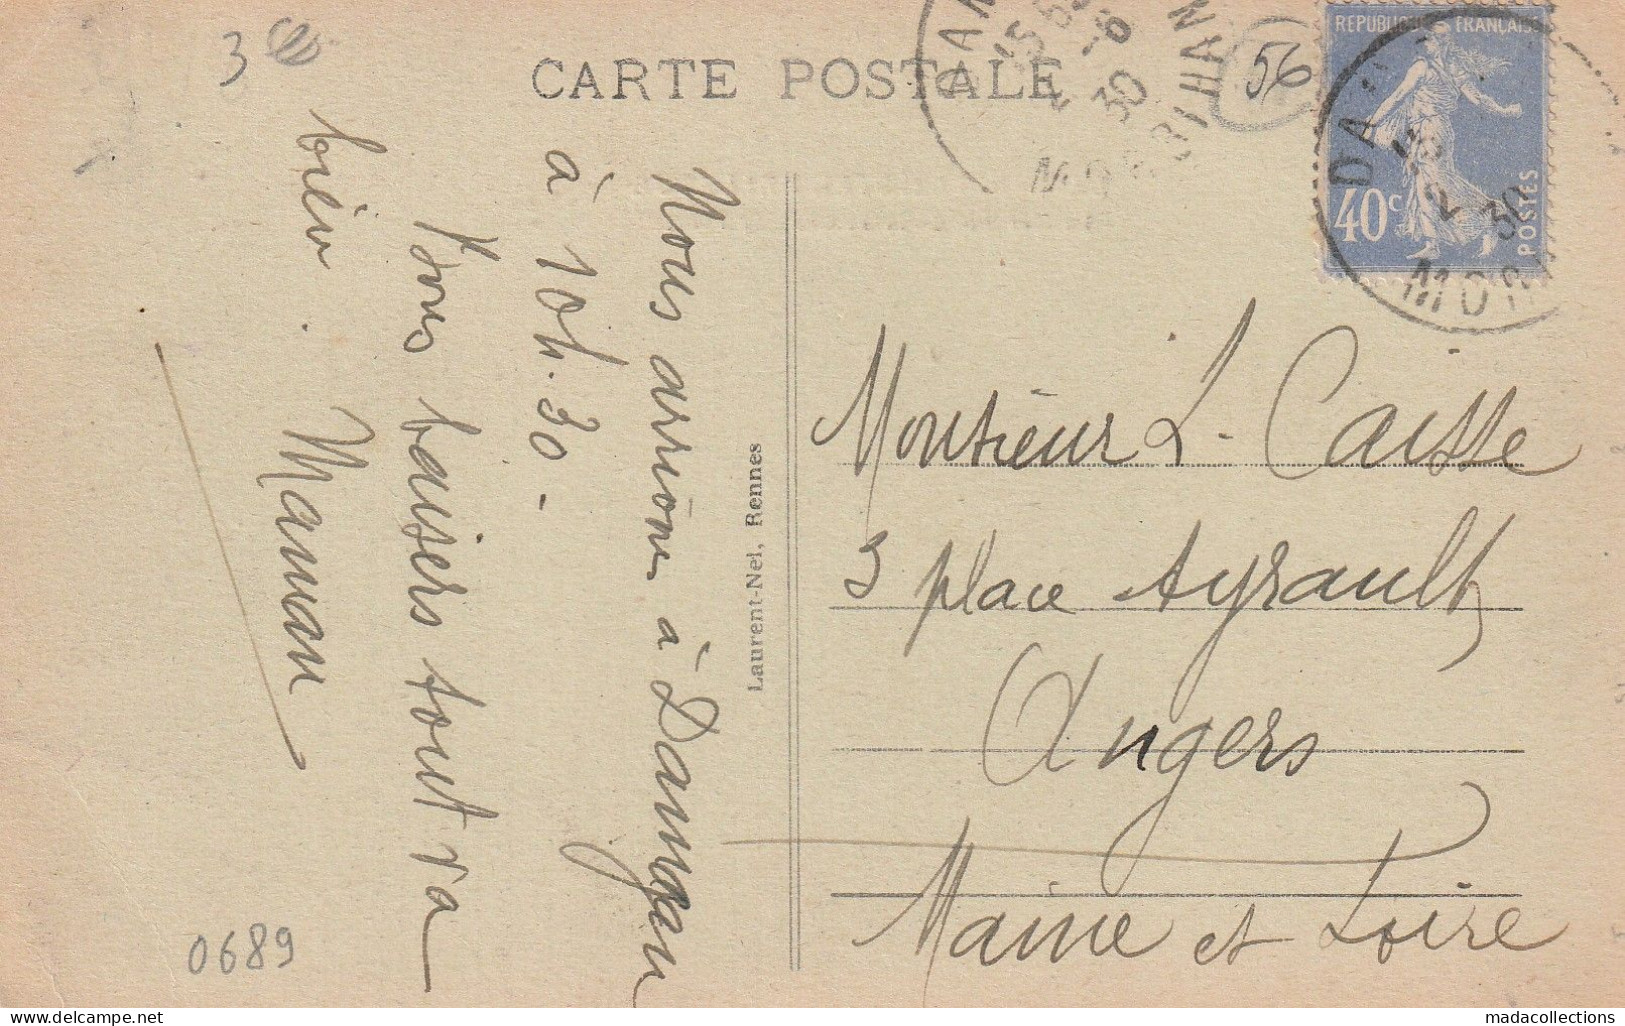 3
CARTE POSTALE
56
REPUBLIQUE FRANÇAISE
40c
POSTES
DA
MOR
30
MORBIHAN
30
Nous arrivons à Damgan
à 10h.30 -
Bons baisers tout va
bien.
Maman
Laurent-Nel, Rennes
Monsieur L. Caisse
3 place Ayrault
Angers
Maine et Loire
0689
www.delcampe.net
madacollections